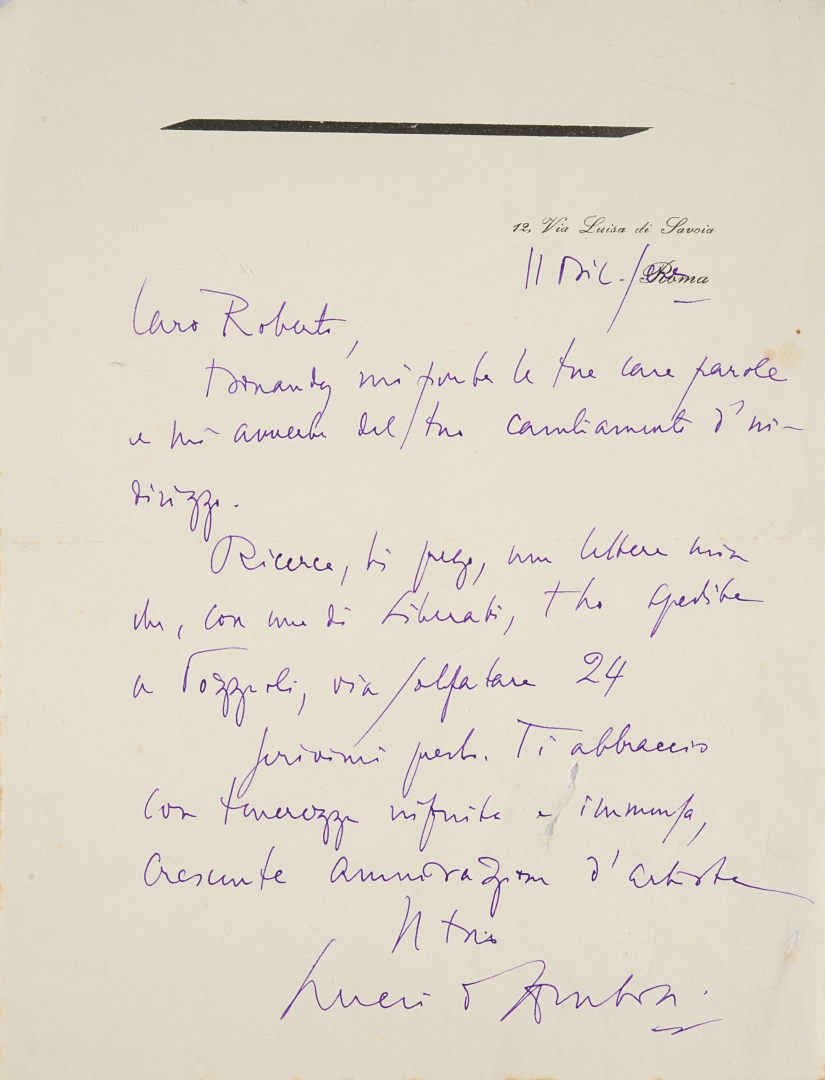 12, Via Luisa di Savoia
Roma
11 Dic.
Caro Roberto,
mi porta le tue care parole
e mi avverte del tuo cambiamento d'in-
dirizzo.
Ricerca, ti prego, una lettera mia
che, con una di Liberati, t'ho spedita
a Pozzuoli, via Solfatara 24
Scrivimi presto. Ti abbraccio
con tenerezza infinita e immensa,
crescente ammirazione d'artista
Il tuo
Lucio d'Ambra.